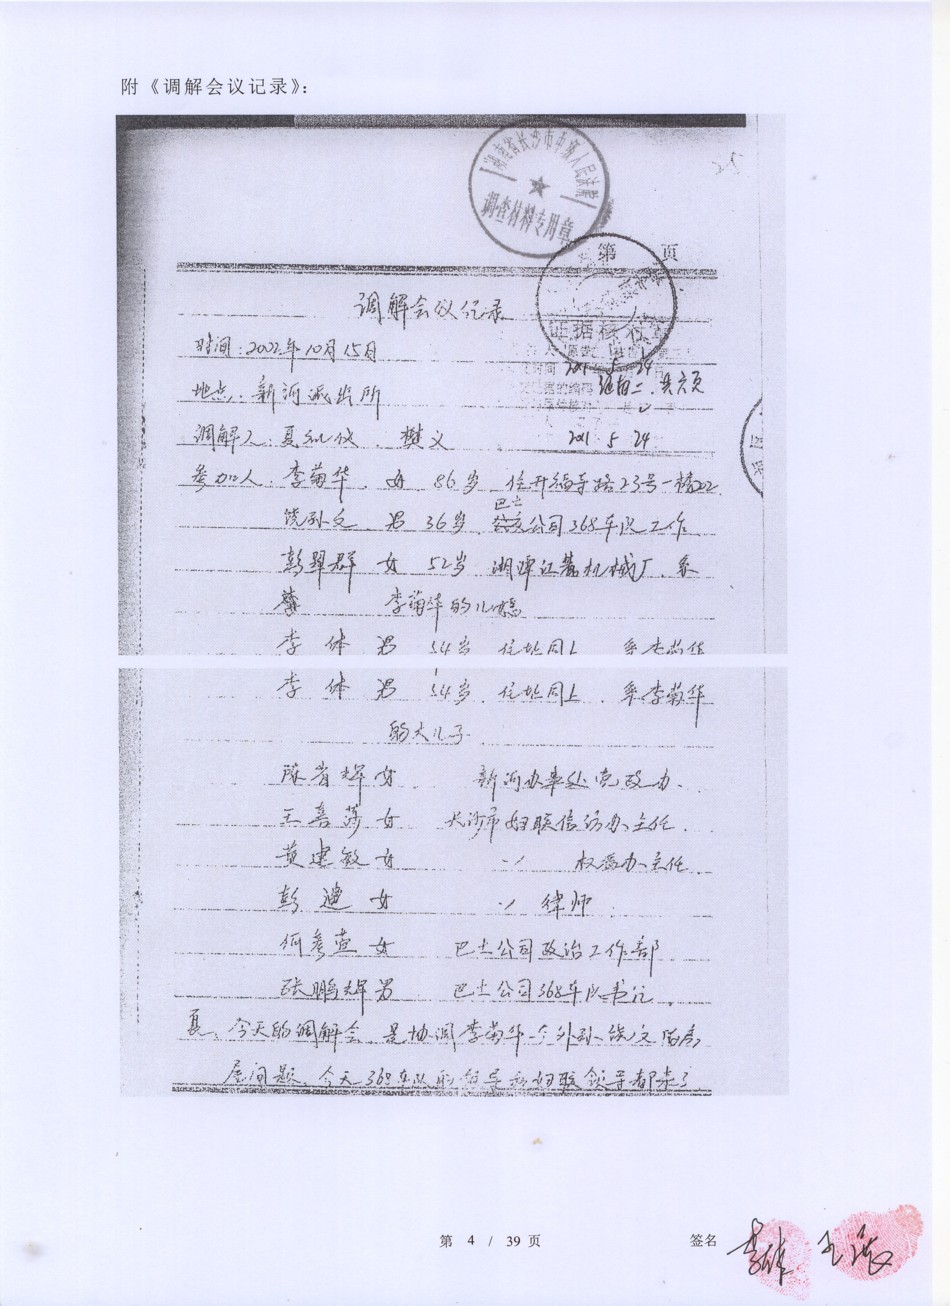 附《调解会议记录》:
湖南省长沙市中级人民法院
调查材料专用章
25
第 页
调解会议记录
证据核对
时间:2002年10月15日
2011 5 24
地点:新河派出所
证据二 共六页
调解人:夏 樊义
2011 5 24
参加人:李菊华 女 86岁 住开福寺路23号一楼202
饶孙文 男 36岁 巴士公司368车队工作
彭翠群 女 52岁 湘潭江麓机械厂、系
李菊华的儿媳
李体 男 54岁 住址同上 系李菊华
李体 男 54岁 住址同上、系李菊华
的大儿子
陈省辉 女 新河办事处党政办、
王喜萍 女 长沙市妇联信访办主任
黄建敏 女 〃 权益办主任
彭迪 女 〃 律师
何彦萱 女 巴士公司政治工作部
张鹏辉 男 巴士公司368车队书记
夏:今天的调解会 是协调李菊华一个外孙饶文
屋问题、今天368车队的领导和妇联领导都来了
第 4 / 39 页
签名